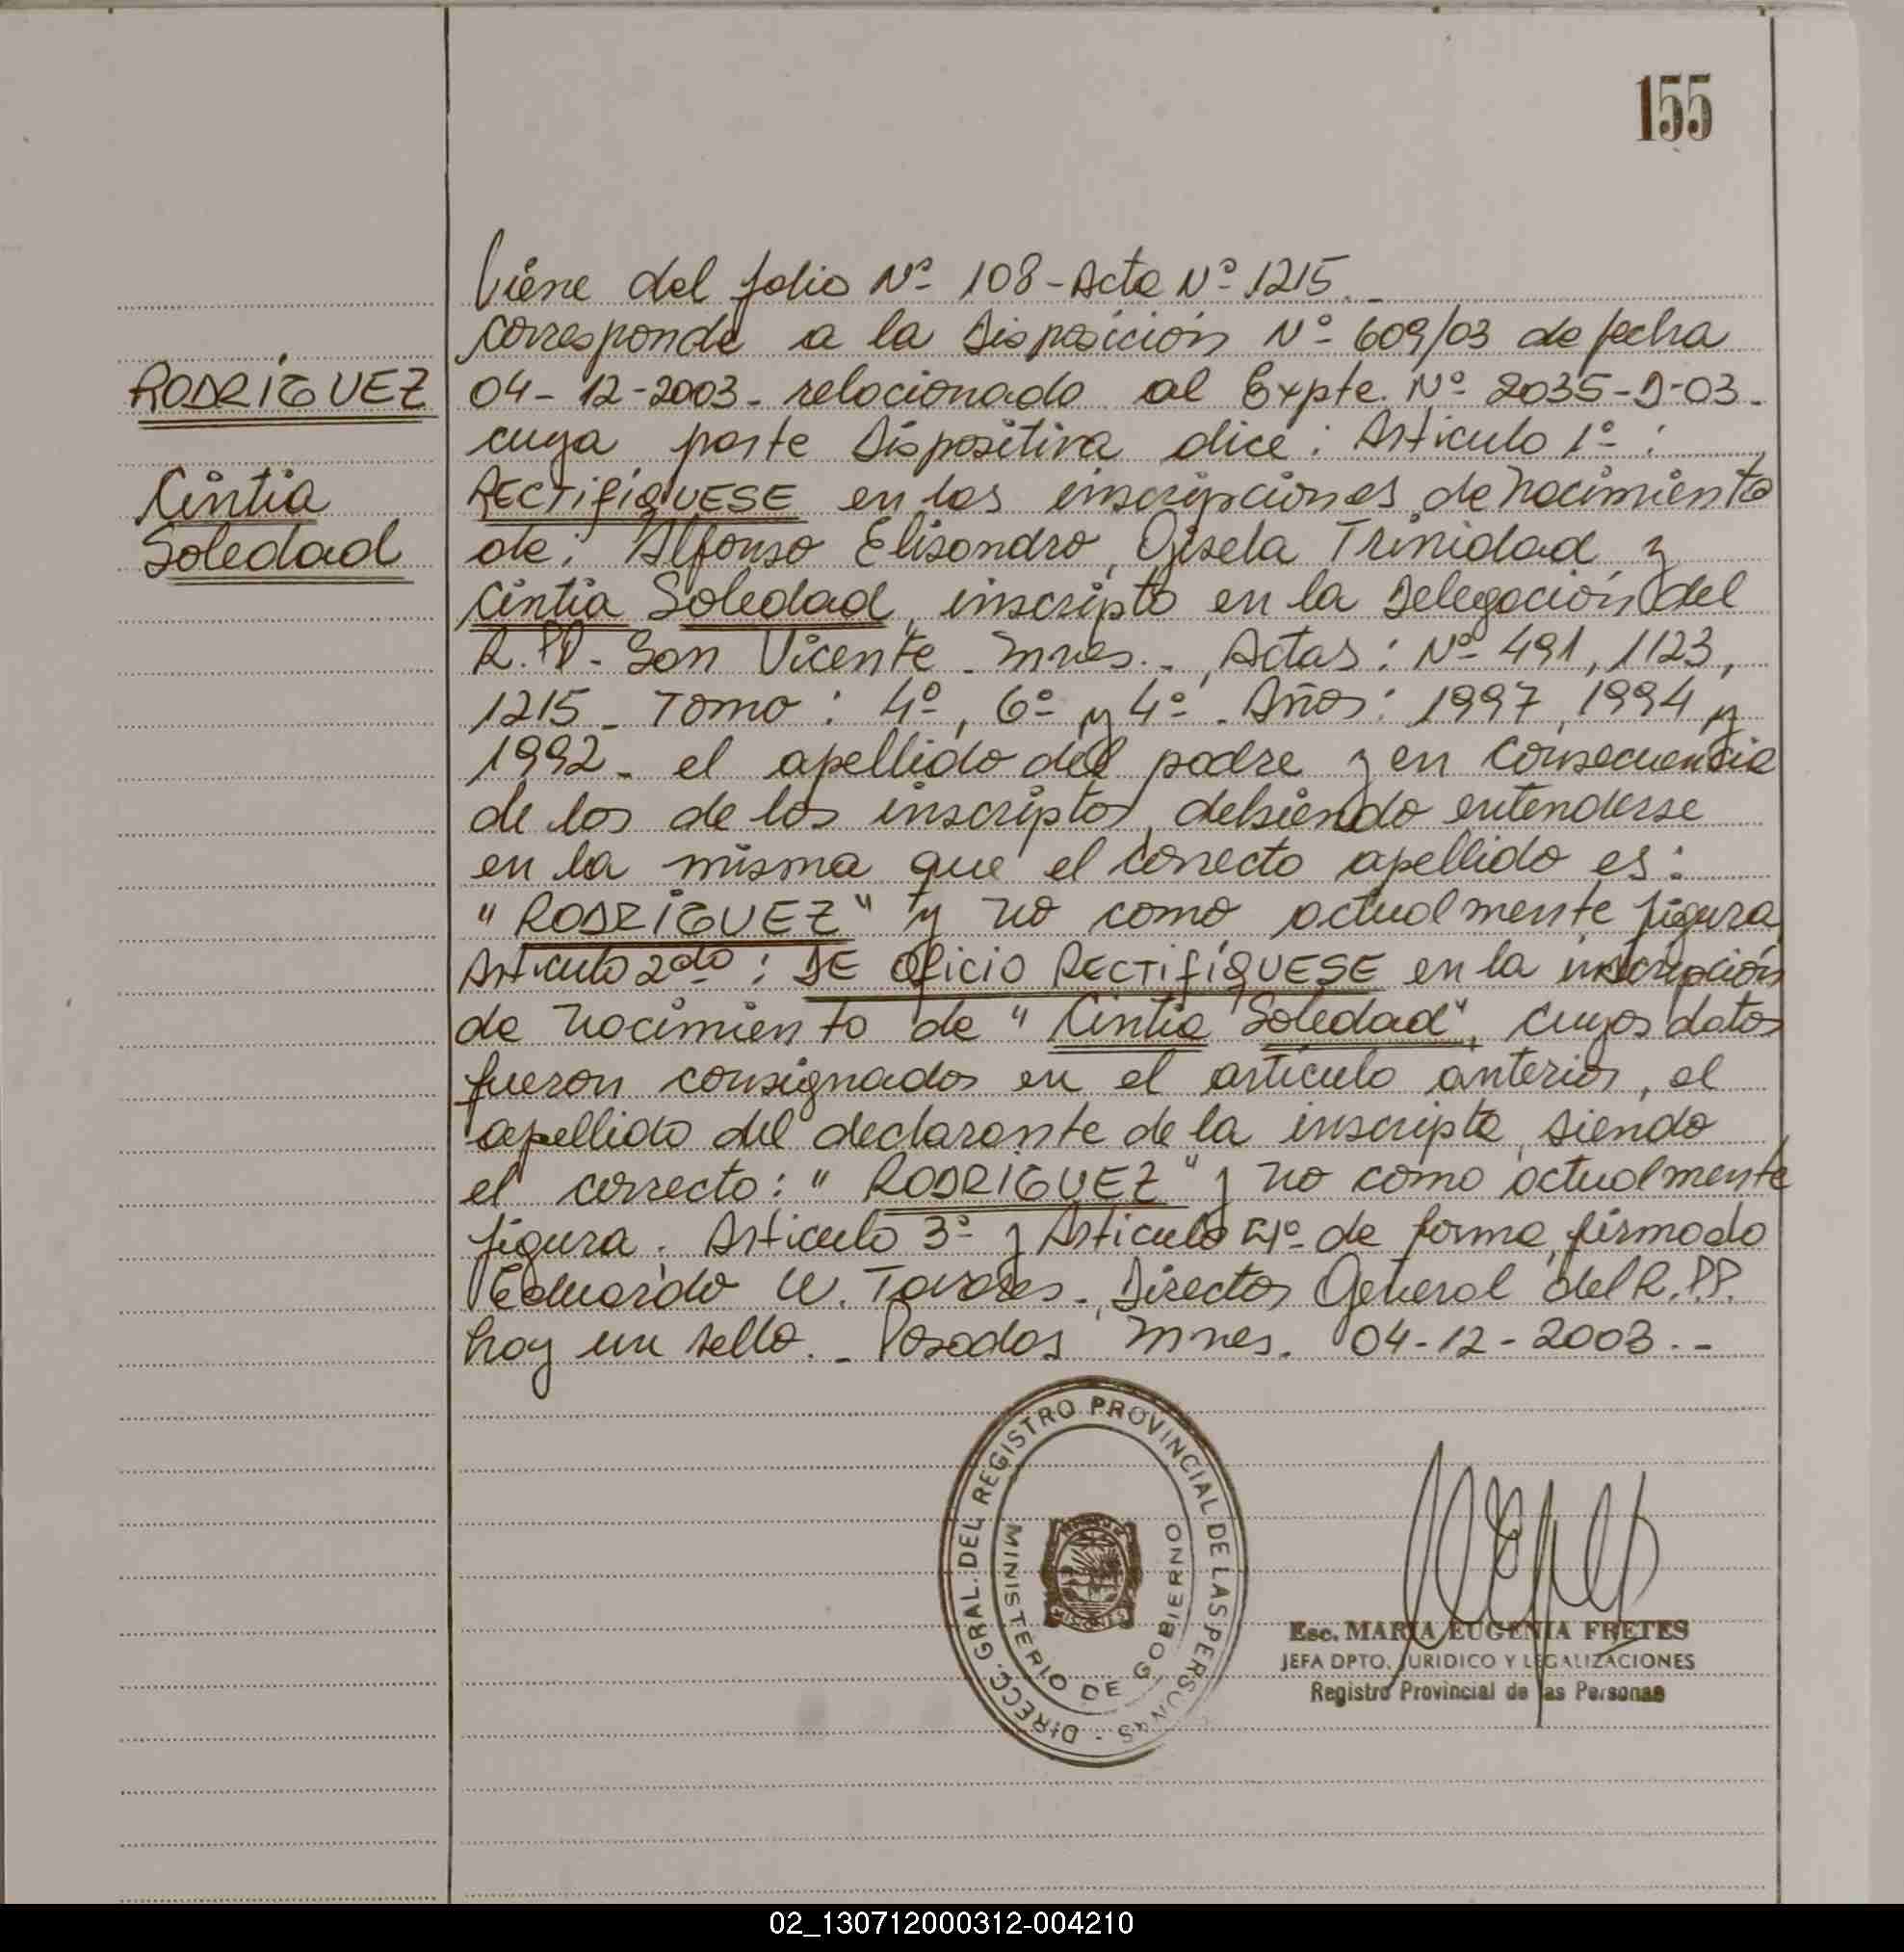 155
Viene del folio Nº 108 - Acta Nº 1215. -
Corresponde a la Disposición Nº 609/03 de fecha
RODRÍGUEZ
04-12-2003- relacionado al Expte. Nº 2035-D-03-
cuya parte Dispositiva dice: Artículo 1º :
Cintia
RECTIFÍQUESE en las inscripciones de nacimiento
Soledad
de: Alfonso Elisandro, Gisela Trinidad y
Cintia Soledad, inscripto en la Delegación del
R.PP- San Vicente - Mnes.- Actas: Nº 491, 1123,
1215 - Tomo: 4º, 6º y 4º. Años: 1997, 1994 y
1992- el apellido del padre y en consecuencia
de los de los inscriptos, debiendo entenderse
en la misma que el correcto apellido es:
"RODRÍGUEZ" y no como actualmente figura
Artículo 2do: DE OFICIO RECTIFÍQUESE en la inscripción
de nacimiento de "Cintia Soledad", cuyos datos
fueron consignados en el artículo anterior, el
apellido del declarante de la inscripta, siendo
el correcto: "RODRÍGUEZ" y no como actualmente
figura. Artículo 3º y Artículo 4º de forma, firmado
Eduardo W. Tavares. Director General del R.PP.
hay un sello. - Posadas Mnes. 04-12-2003. -
DIRECC. GRAL. DEL REGISTRO PROVINCIAL DE LAS PERSONAS -
MINISTERIO DE GOBIERNO
MISIONES
Esc. MARIA EUGENIA FRETES
JEFA DPTO. JURIDICO Y LEGALIZACIONES
Registro Provincial de las Personas
02_130712000312-004210